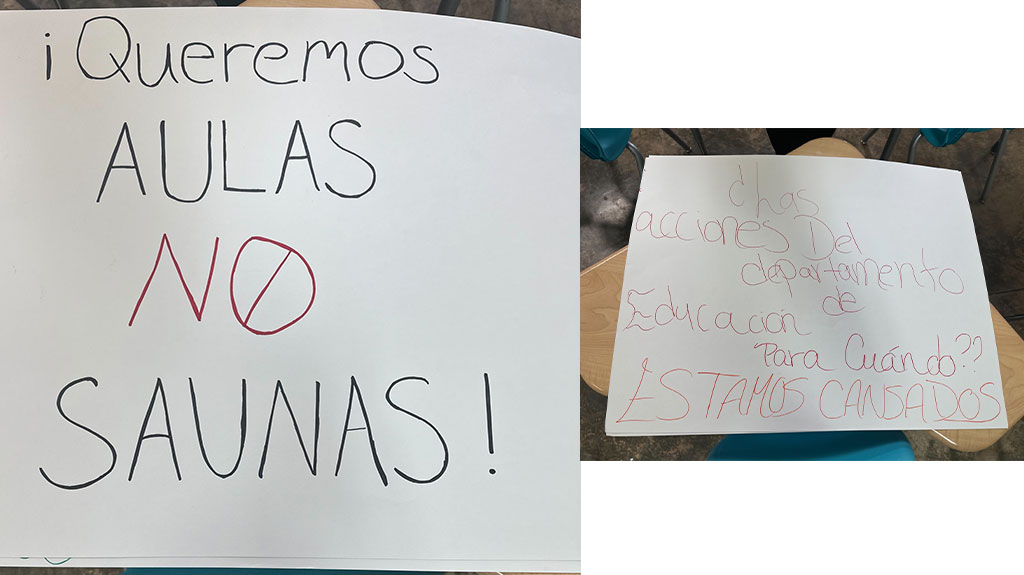 ¡Queremos
AULAS
NO
SAUNAS!
¿has
acciones Del
departamento
de
Educación
Para Cuándo??
ESTAMOS CANSADOS